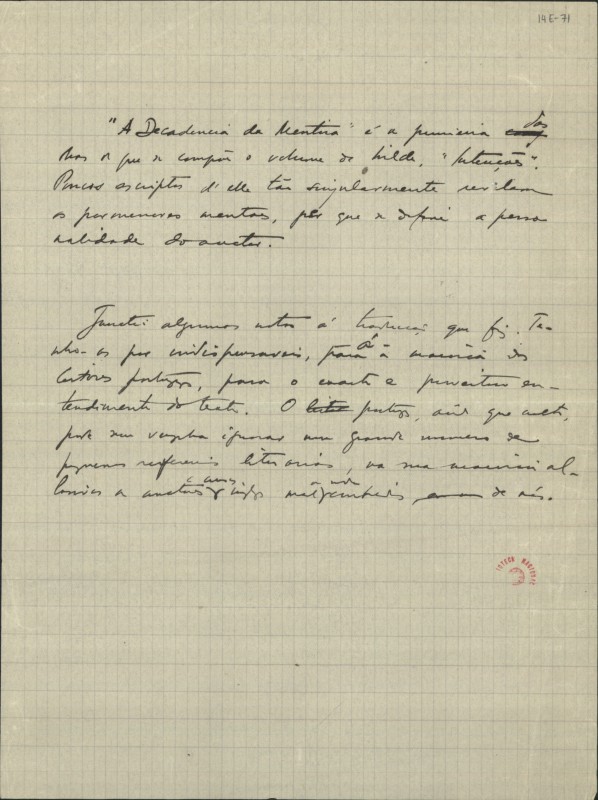 14E-71
"A Decadencia da Mentira" é a primeira das
de que se compõe o volume de Wilde, "Intenções".
Poucos escriptos d'elle tão singularmente revelam
os pormenores mentaes, por que se define a perso-
nalidade do auctor.
Junctei algumas notas á traducção que fiz. Te-
nho-as por indispensaveis, para a maioria dos
leitores portugs, para o exacto e perceitivo en-
tendimento do texto. O portugs, ainda que culto,
pode sem vergonha ignorar um grande numero de
pequenas referencias literarias, na sua maioria al-
lusivas a auctores e cousas inglezas mal conhecidas de nós.